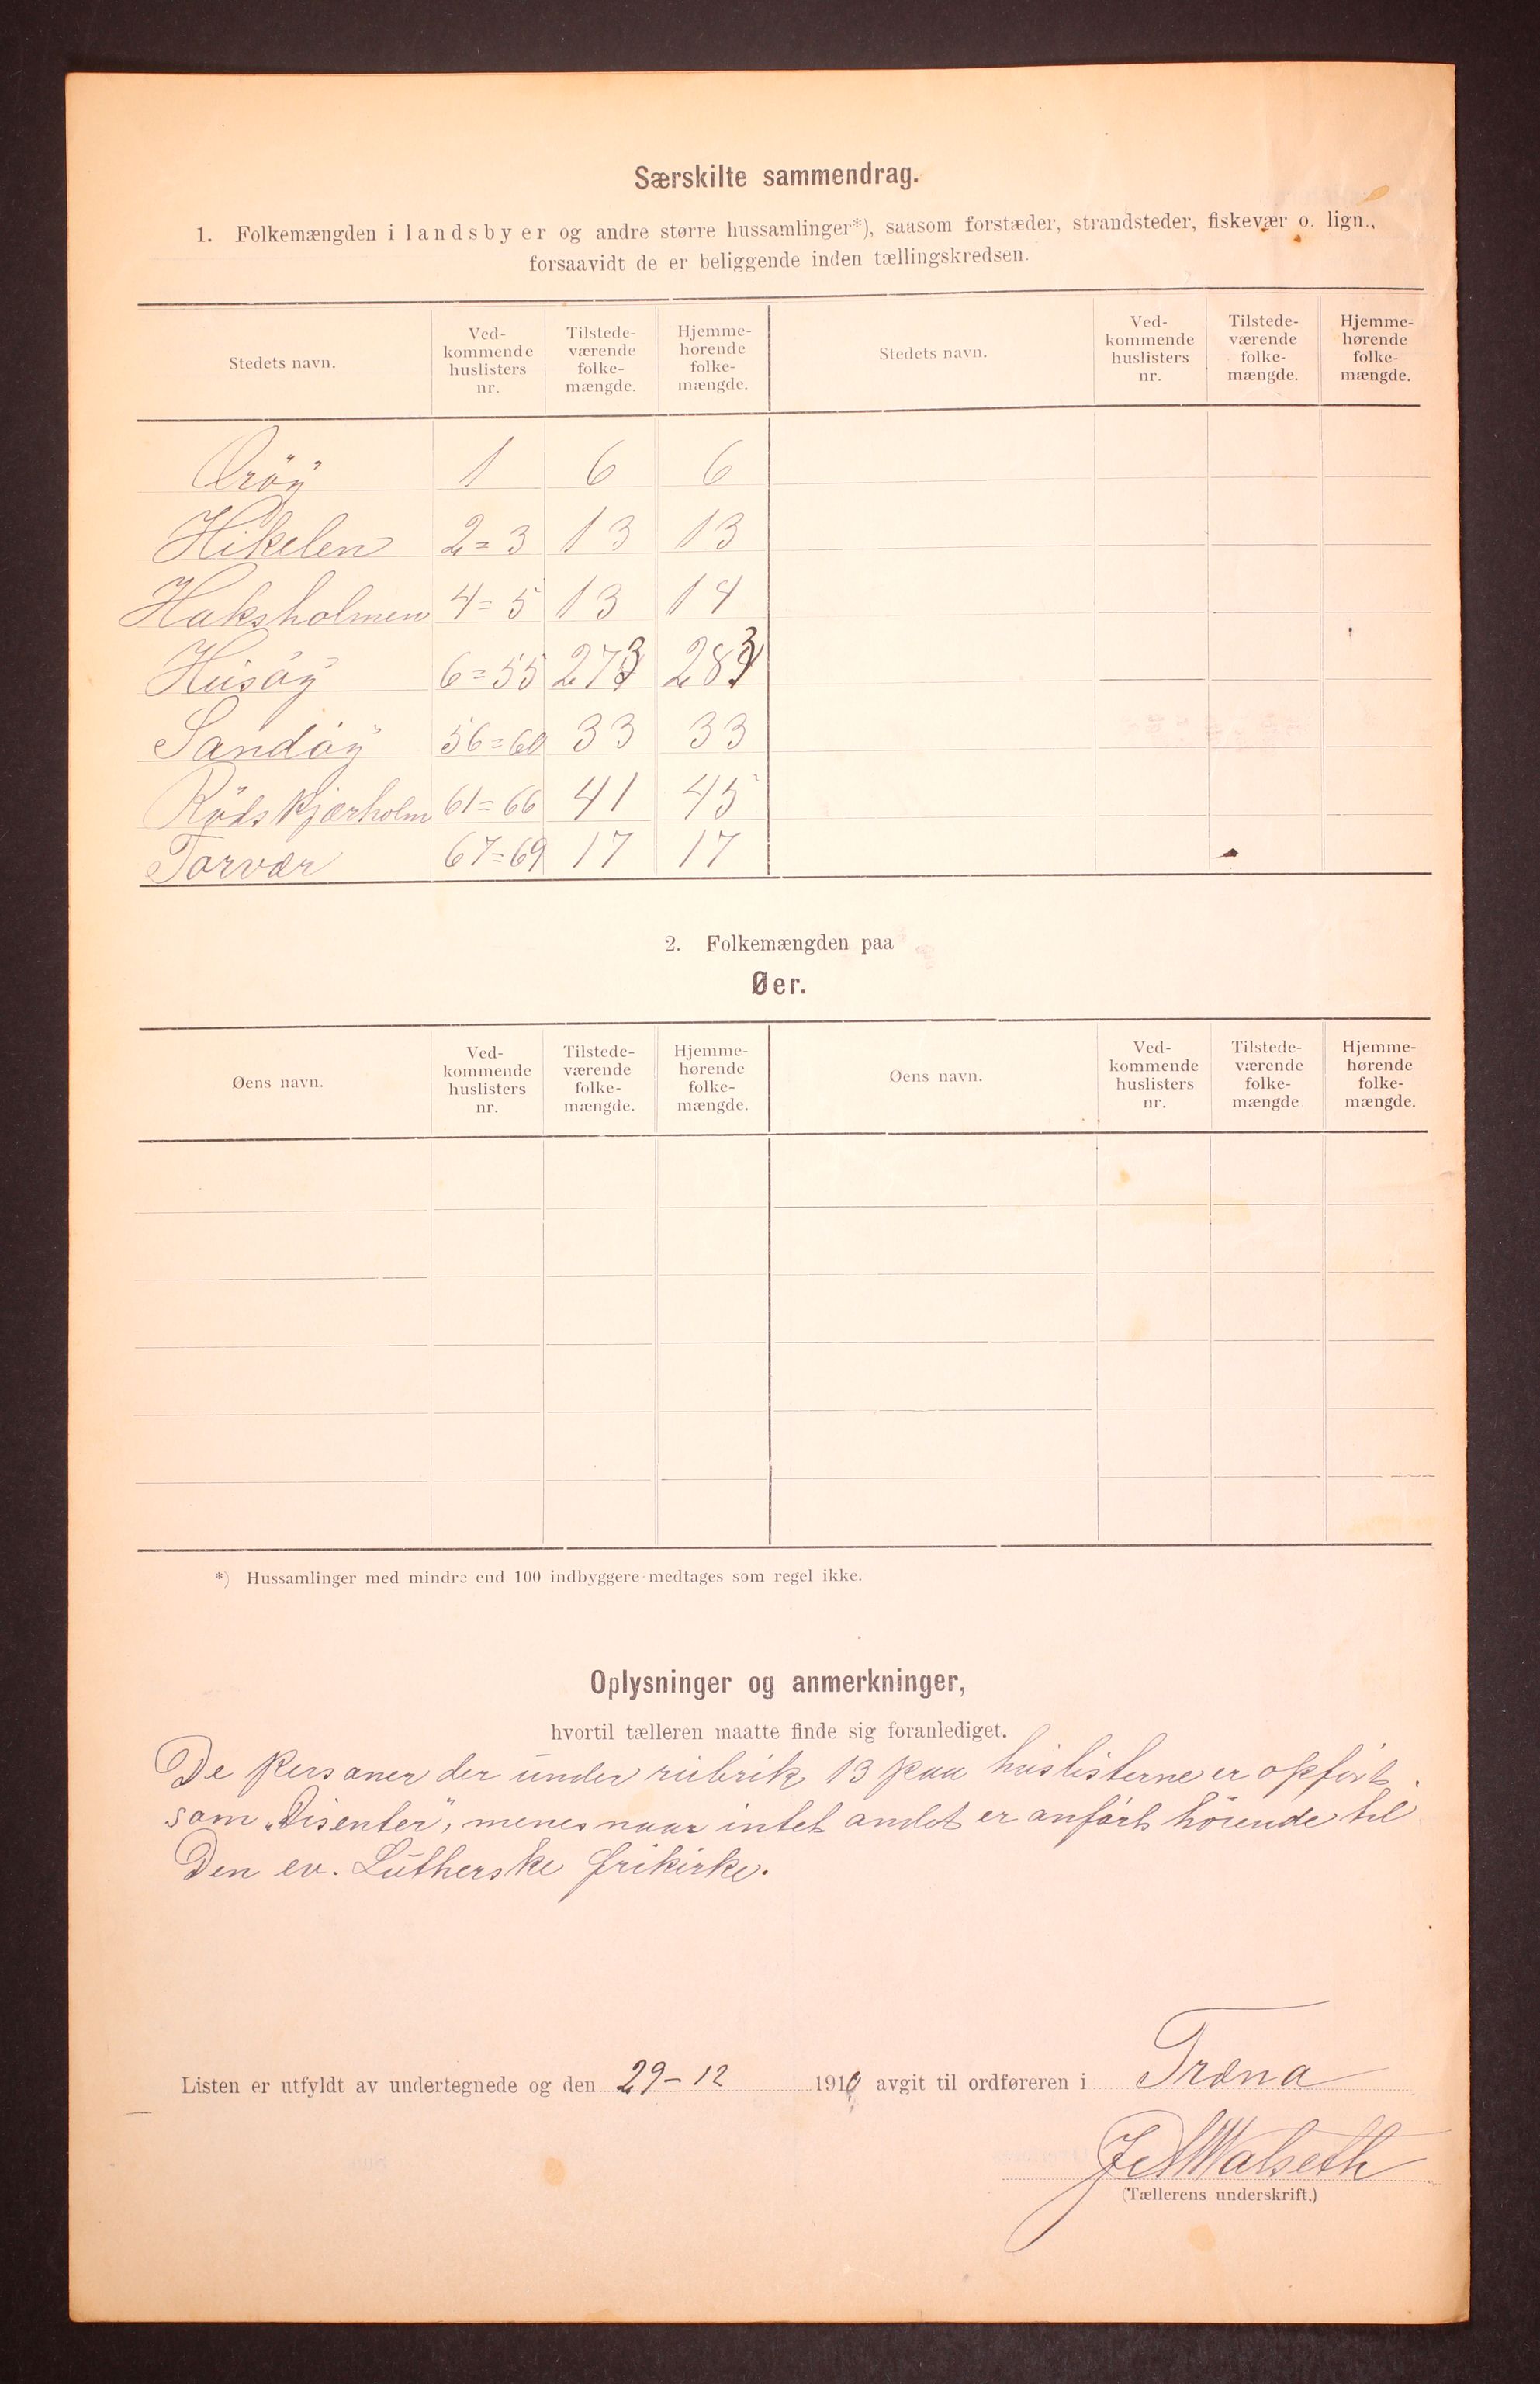 Særskilte sammendrag.
1. Folkemængden i landsbyer og andre større hussamlinger*), saasom forstæder, strandsteder, fiskevær o. lign.,
forsaavidt de er beliggende inden tællingskredsen.
Stedets navn. Ved-kommende huslisters nr. Tilstede-værende folke-mængde. Hjemme-hørende folke-mængde. Stedets navn. Ved-kommende huslisters nr. Tilstede-værende folke-mængde. Hjemme-hørende folke-mængde.
1 6 6
Hikelen 2=3 13 13
Haksholmen 4=5 13 14
Husöÿ 6=55 273 283
Sandöÿ 56=60 33 33
Rödskjærholm 61=66 41 45
Torvær 67=69 17 17
2. Folkemængden paa
Øer.
Øens navn. Ved-kommende huslisters nr. Tilstede-værende folke-mængde. Hjemme-hørende folke-mængde. Øens navn. Ved-kommende huslisters nr. Tilstede-værende folke-mængde Hjemme-hørende folke-mængde.
*) Hussamlinger med mindre end 100 indbyggere medtages som regel ikke.
Oplysninger og anmerkninger,
hvortil tælleren maatte finde sig foranlediget.
De personer der under rubrik 13 paa huslisterne er opfört
som „Disenter", menes naar intet andet er anført hörende til
Den ev. Lutherske frikirke.
Listen er utfyldt av undertegnede og den 29-12 1910 avgit til ordføreren i Træna
Walseth
(Tællerens underskrift.)